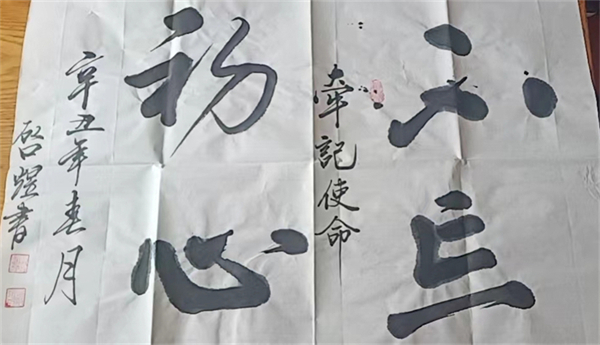 不忘
牢記使命
初心
辛丑年春月
启煜書